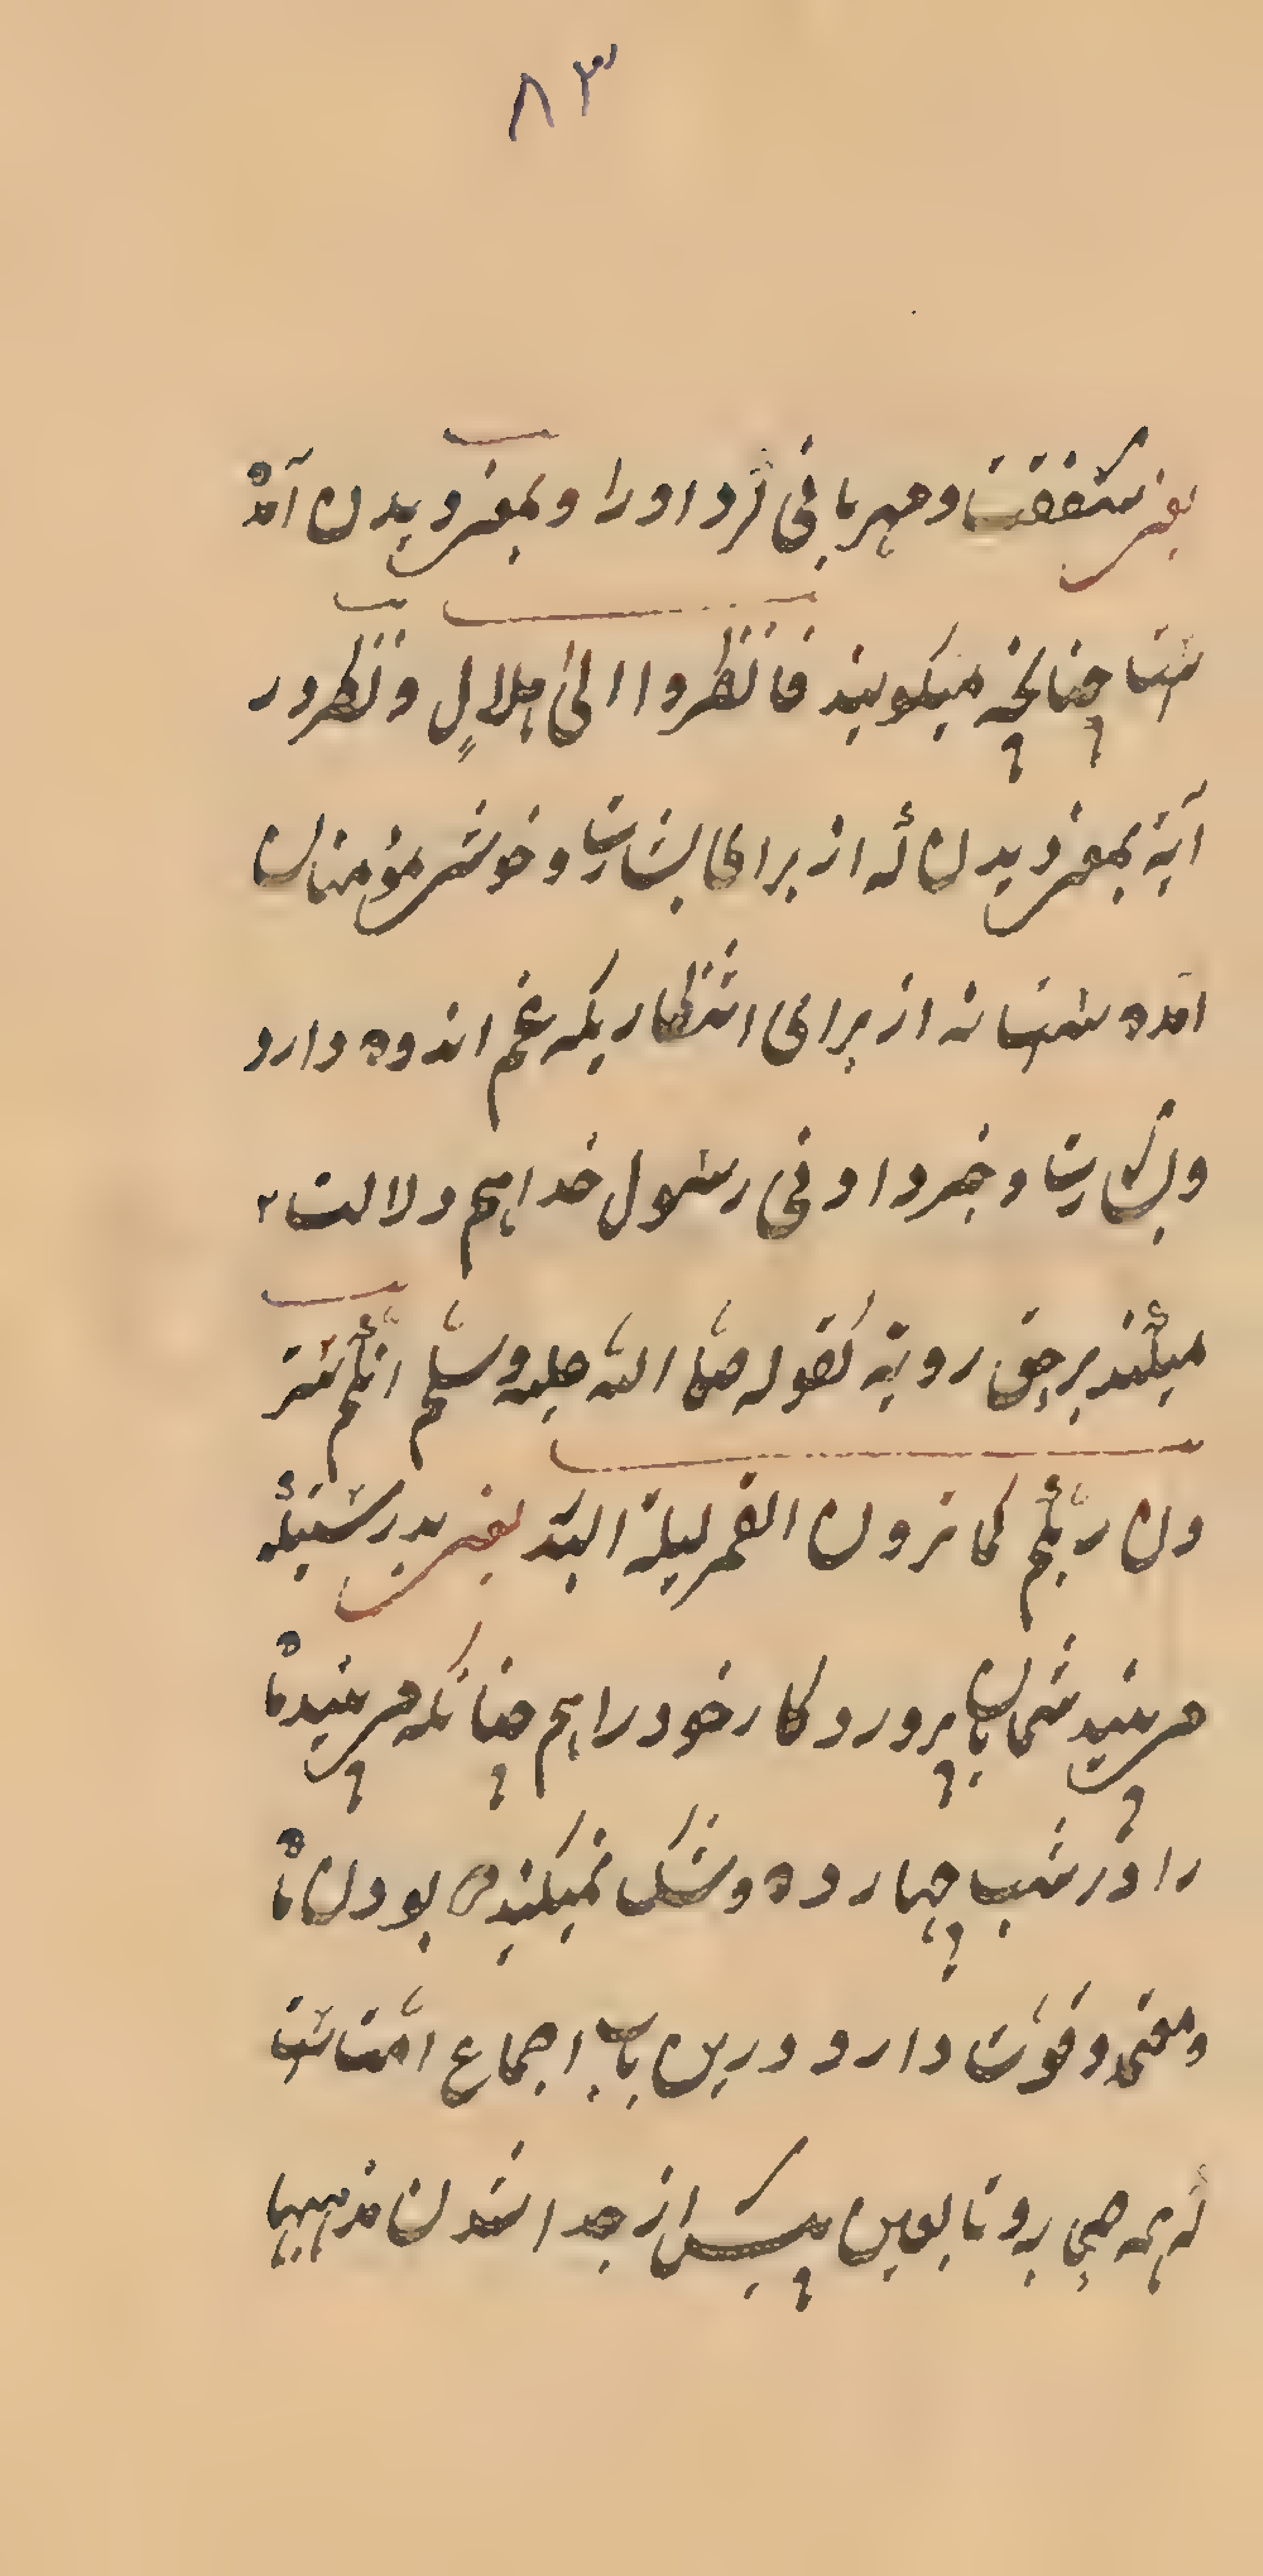 ٨٣
یعنی شفقت و مهربانی کرد او را و بمعنی دیدن آمده
است چنانچه میکویند فانظروا الی هلالٍ و نظر در
آیة بمعنی دیدن که از برای بشارت و خوشی مؤمنان
آمده است نه از برای انتظاریکه غم اندوه دارد
و بشارت و خبر دادنی رسول خدا هم دلالت
میکند بر حق رویة کقوله صلّی اللّه علیه وسلّم انکم ستر
ون ربّکم کما ترون القمر لیلة البدر یعنی بدرستیکه
می بینید شمایان پروردکار خود را هم چنانکه می بینید ماه
را در شب چهارده و شک نمیکنید در بودن ماه
و معنی وقوّت دارد درین باب اجماع امّت است
که همه صحابه و تابعین پیش از جدا شدن مذهبها